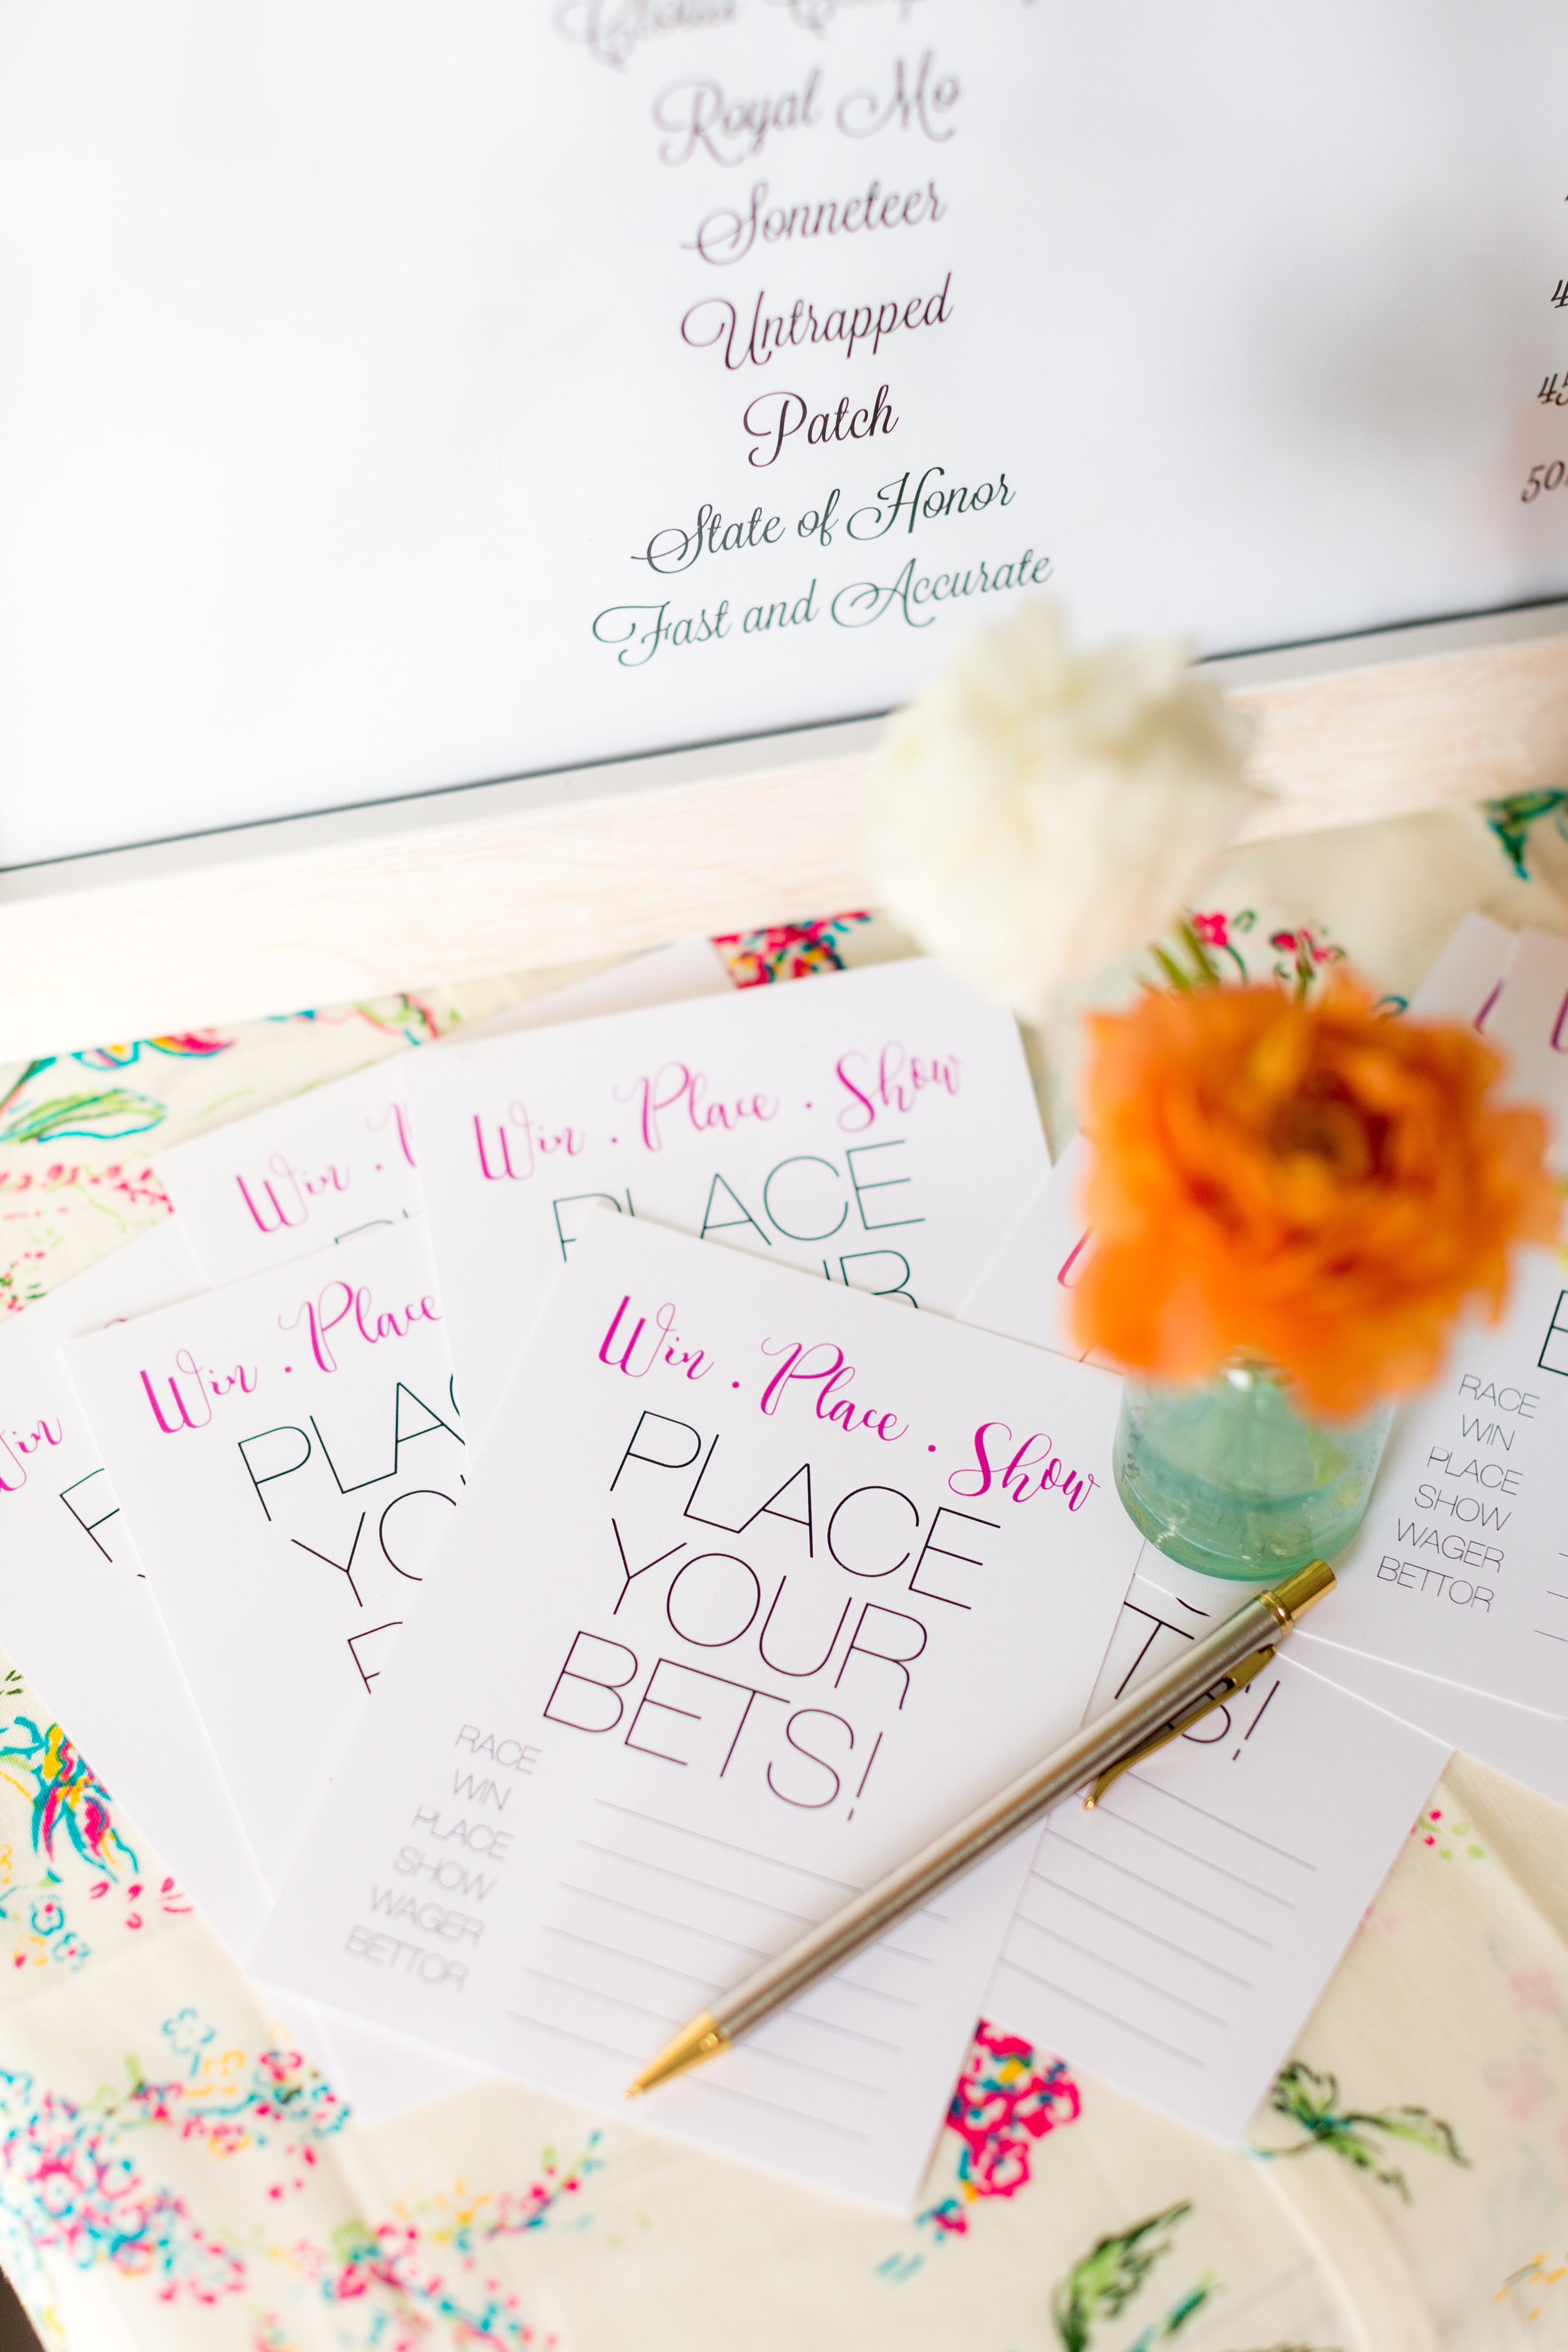 Royal Mo
Sonneteer
Untrapped
Patch
State of Honor
Fast and Accurate
Win . Place . Show
PLACE
Win .
Win . Place
PLA
YO
Win
Win . Place . Show
PLACE
YOUR
BETS!
RACE
WIN
PLACE
SHOW
WAGER
BETTOR
RACE
WIN
PLACE
SHOW
WAGER
BETTOR